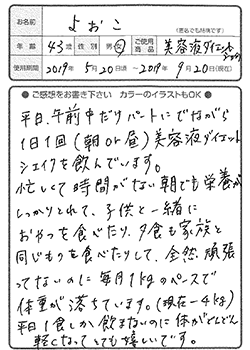 お名前 よおこ (匿名でも結構です)
年齢 43才 性別 男・女 ご使用商品 美容液ダイエットシェイク
使用期間 2019年 5月20日頃 〜 2019年 9月20日(現在)
● ご感想をお書き下さい カラーのイラストもOK ●
平日、午前中だけパートにでながら
1日1回(朝or昼)美容液ダイエット
シェイクを飲んでいます。
忙しくて時間がない朝でも栄養が
しっかりとれて、子供と一緒に
おやつを食べたり、夕食も家族と
同じものを食べたりして、全然頑張
ってないのに毎月1kgのペースで
体重が落ちています。(現在−4kg)
平日1食しか飲まないのに体がどんどん
軽くなってとても嬉しいです。